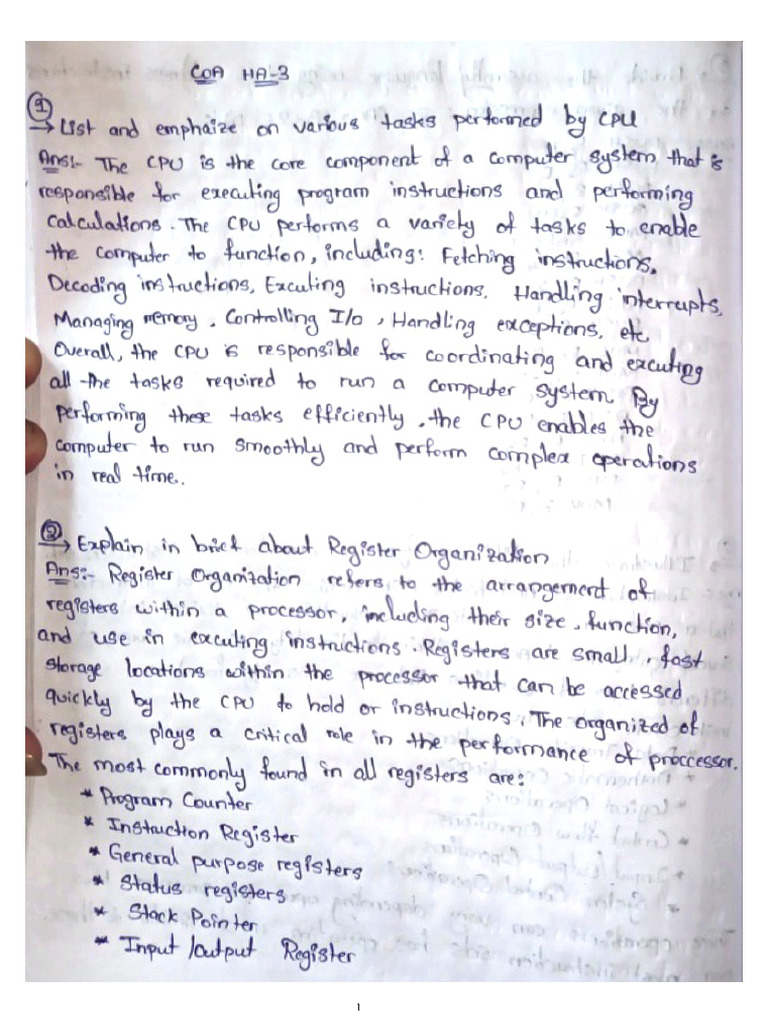 COA HA-3
1
→ List and emphaize on various tasks performed by CPU
Ans:- The CPU is the core component of a computer system that is
responsible for executing program instructions and performing
calculations. The CPU performs a variety of tasks to enable
the computer to function, including: Fetching instructions,
Decoding instructions, Excuting instructions, Handling interrupts,
Managing memory, Controlling I/O, Handling exceptions, etc
Overall, the CPU is responsible for coordinating and excuting
all the tasks required to run a computer system. By
performing these tasks efficiently, the CPU enables the
computer to run smoothly and perform complex operations
in real time..
2
→ Explain in brief about Register Organization
Ans:- Register Organization refers to the arrangement of
registers within a processor, including their size, function,
and use in excuting instructions. Registers are small, fast
storage locations within the processor that can be accessed
quickly by the CPU to hold or instructions. The organized of
registers plays a critical role in the performance of proccessor.
The most commonly found in all registers are:
* Program Counter
* Instruction Register
* General purpose registers
* Status registers
* Stack Pointer
* Input /output Register
1